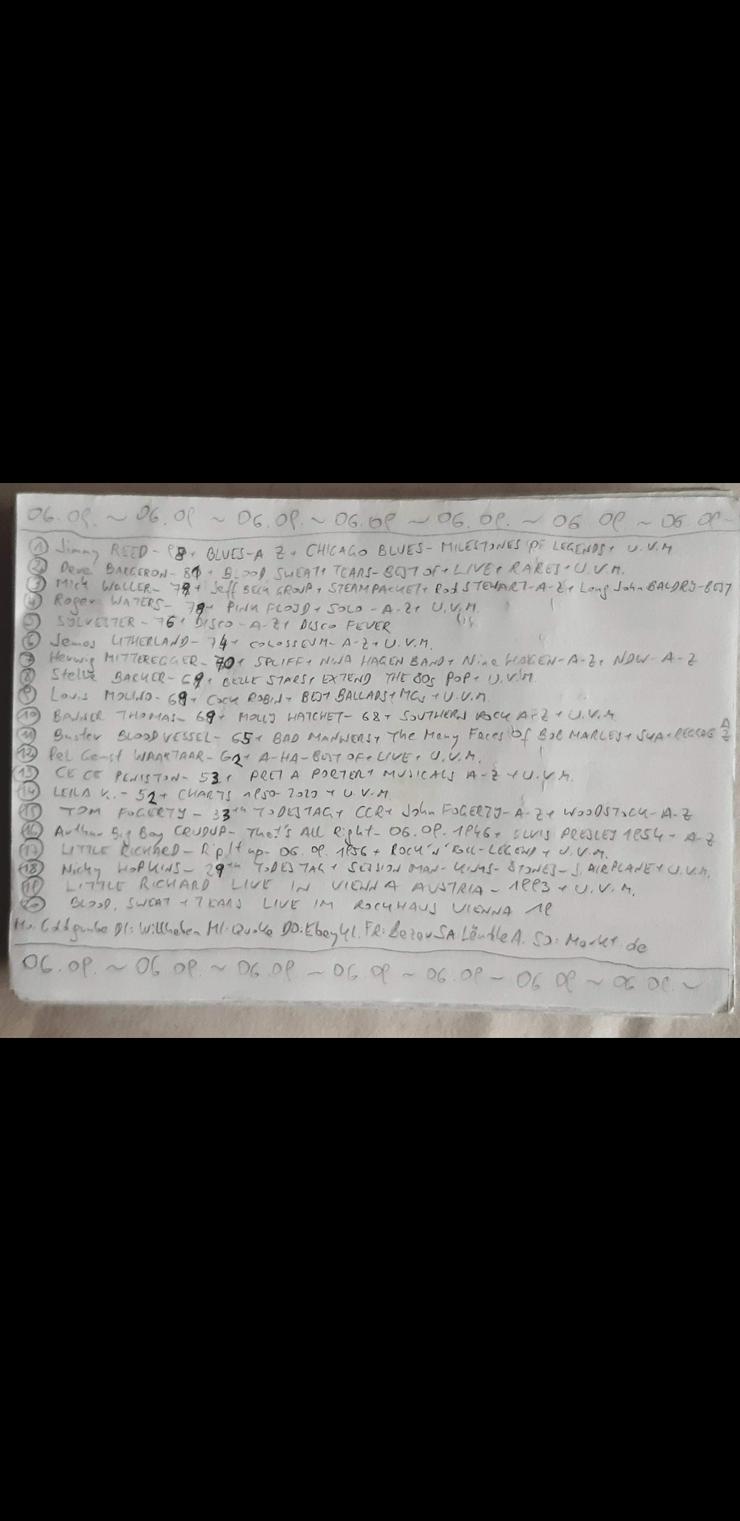 06.09. ~ 06.09 ~ 06.09. ~ 06.09 ~ 06.09. ~ 06 09 ~ 06.09 ~
① Jimmy REED - 98 + BLUES - A Z + CHICAGO BLUES - MILESTONES OF LEGENDS + U.V.M
② Dave BARGERON - 81 + BLOOD, SWEAT + TEARS - BEST OF + LIVE + RARES + U.V.M.
③ Mick WALLER - 79 + Jeff BECK GROUP + STEAMPACKET + Rod STEWART - A-Z + Long John BALDRY - BEST
④ Roger WATERS - 79 + PINK FLOYD + SOLO - A-Z + U.V.M.
⑤ SYLVESTER - 76 + DISCO - A-Z + DISCO FEVER
⑥ James LITHERLAND - 74 + COLOSSEUM - A-Z + U.V.M.
⑦ Herwig MITTEREGGER - 70 + SPLIFF + NINA HAGEN BAND + Nina HAGEN - A-Z + NDW - A-Z
⑧ Stella BARKER - 69 + BELLE STARS + EXTEND THE 80s POP + U.V.M.
⑨ Louis MOLINO - 69 + COCK ROBIN + BEST BALLADS + MCs + U.V.M
⑩ BANNER THOMAS - 69 + MOLLY HATCHET - 68 + SOUTHERN ROCK A-Z + U.V.M.
⑪ Buster BLOODVESSEL - 65 + BAD MANNERS + The Many Faces Of BOB MARLEY + SKA + REGGAE A Z
⑫ Pål WAAKTAAR - 62 + A-HA - BEST OF + LIVE + U.V.M.
⑬ CE CE PENISTON - 53 + PRET A PORTER + MUSICALS A-Z + U.V.M.
⑭ LEILA K. - 52 + CHARTS 1950-2020 + U.V.M
⑮ TOM FOGERTY - 33th TODESTAG + CCR + John FOGERTY - A-Z + WOODSTOCK - A-Z
⑯ Arthur Big Boy CRUDUP - That's All Right - 06.09.1946 + ELVIS PRESLEY 1954 - A-Z
⑰ LITTLE RICHARD - Rip It up - 06.09.1956 + ROCK'N'ROLL - LEGEND + U.V.M.
⑱ Nicky HOPKINS - 29th TODESTAG + SESSION MAN - KINKS - STONES - J. AIRPLANE + U.V.M.
⑲ LITTLE RICHARD LIVE IN VIENNA AUSTRIA - 1993 + U.V.M.
⑳ BLOOD, SWEAT + TEARS LIVE IM ROCKHAUS VIENNA 19
Mo: DI: Willhaben MI: Quoka DO: Ebay Kl. FR: Bazar SA: LändleA. SO: Markt.de
06.09. ~ 06 09. ~ 06.09. ~ 06.09 ~ 06.09 ~ 06 09 ~ 06 09. ~